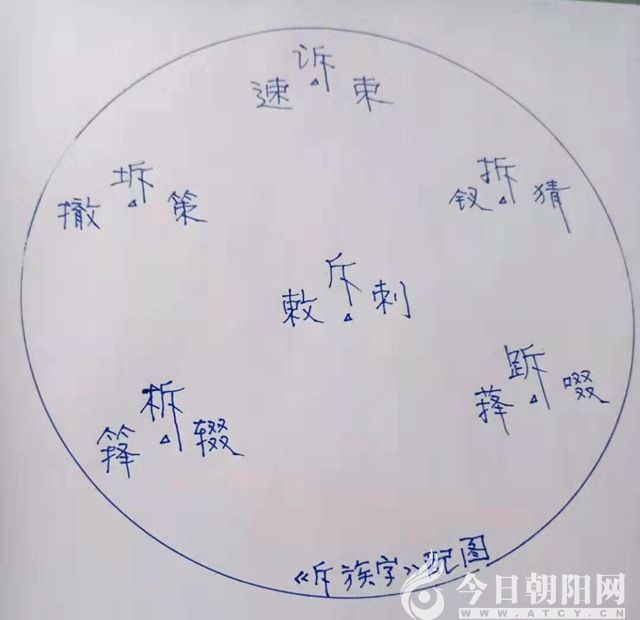 诉
速 束
坼
撤 策
拆
钗 猜
斥
敕 刺
柝
箨 辍
跅
萚 啜
《斥族字》配图
今日朝阳网
WWW.ATCY.CN